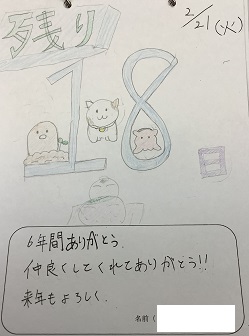 2/21(火)
残り
18
日
6年間ありがとう.
仲良くしてくれてありがとう!!
来年もよろしく.
名前(